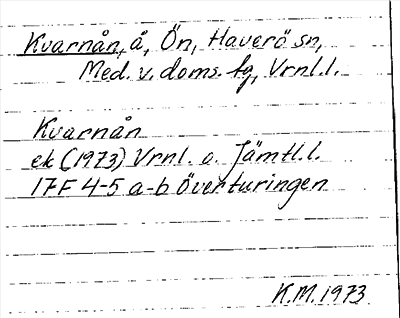 Kvarnån, å, Ön, Haverö sn,
Med. v. doms. fg, Vrnl.l.
Kvarnån
ek (1973) Vrnl. o. Jämtl.l.
17F 4-5 a-b Överturingen
K.M. 1973